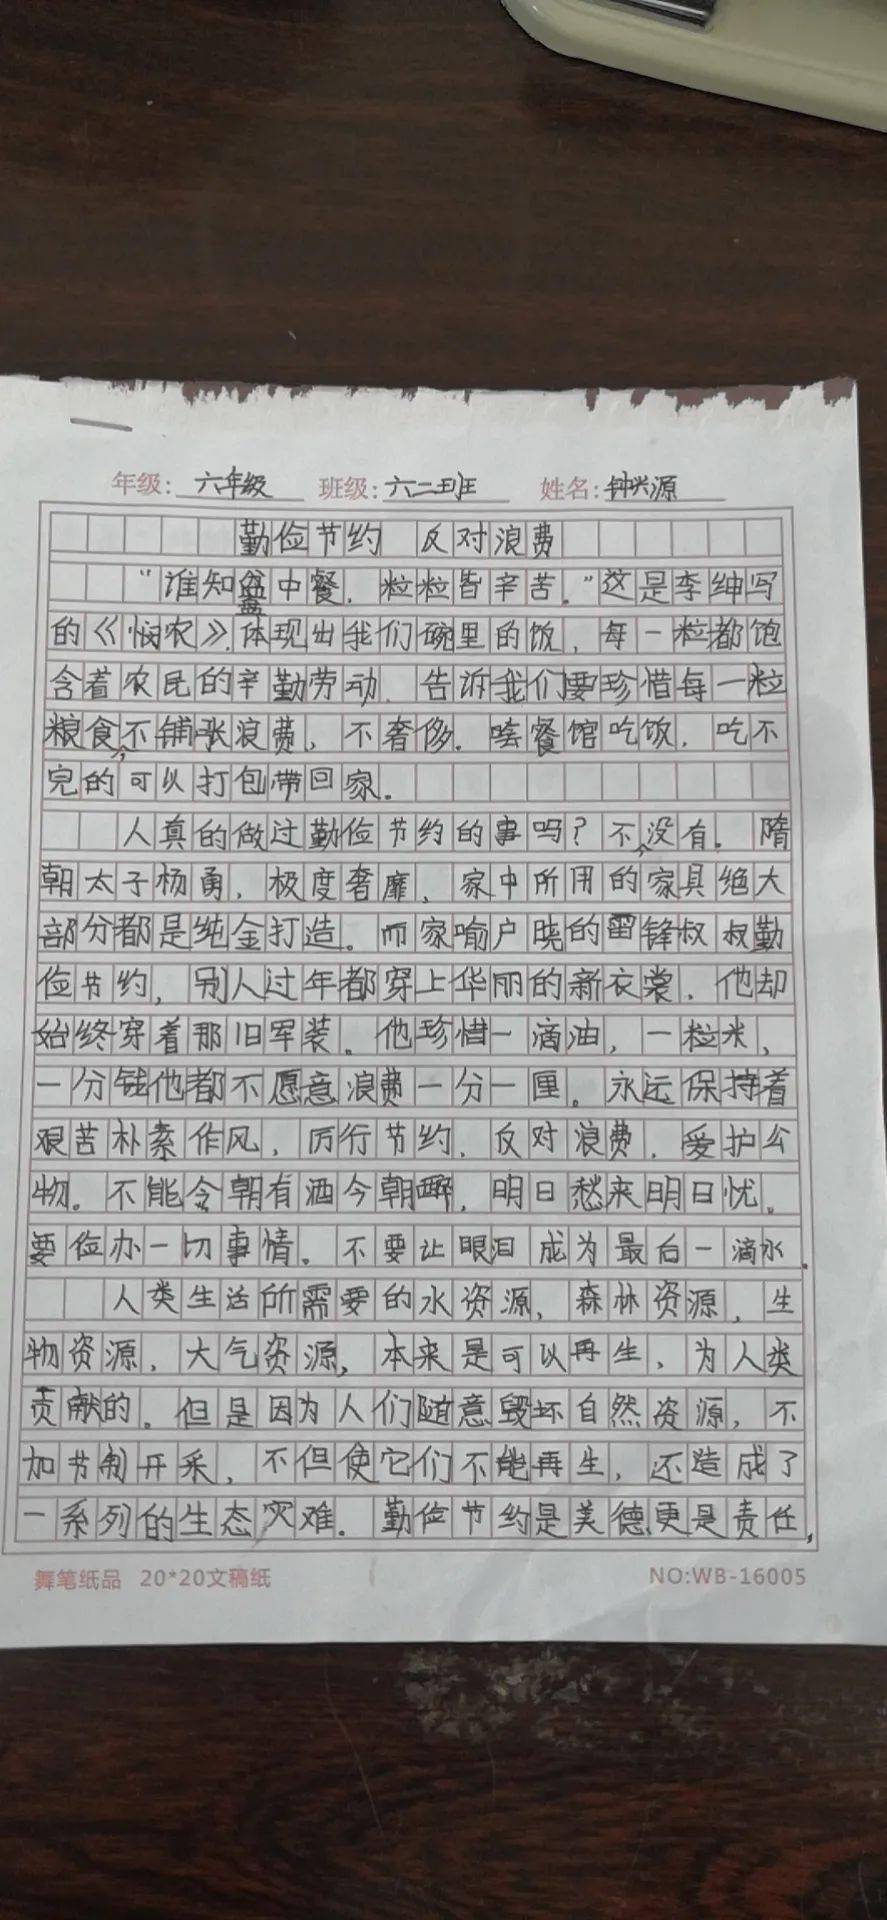 年级：六年级 班级：六二班 姓名：钟兴源
勤俭节约 反对浪费
“谁知盘中餐，粒粒皆辛苦。”这是李绅写
的《悯农》。体现出我们碗里的饭，每一粒都饱
含着农民的辛勤劳动，告诉我们要珍惜每一粒
粮食，不铺张浪费，不奢侈。去餐馆吃饭，吃不
完的可以打包带回家。
人真的做过勤俭节约的事吗？不，没有。隋
朝太子杨勇，极度奢靡，家中所用的家具绝大
部分都是纯金打造。而家喻户晓的雷锋叔叔勤
俭节约，别人过年都穿上华丽的新衣裳，他却
始终穿着那旧军装。他珍惜一滴油，一粒米，
一分钱他都不愿意浪费一分一厘。永远保持着
艰苦朴素作风，厉行节约，反对浪费，爱护公
物。不能令朝有酒今朝醉，明日愁来明日忧。
要俭办一切事情。不要让眼泪成为最后一滴水。
人类生活所需要的水资源，森林资源，生
物资源，大气资源，本来是可以再生，为人类
贡献的。但是因为人们随意毁坏自然资源，不
加节制开采，不但使它们不能再生，还造成了
一系列的生态灾难。勤俭节约是美德，更是责任，
舞笔纸品 20*20文稿纸 NO:WB-16005